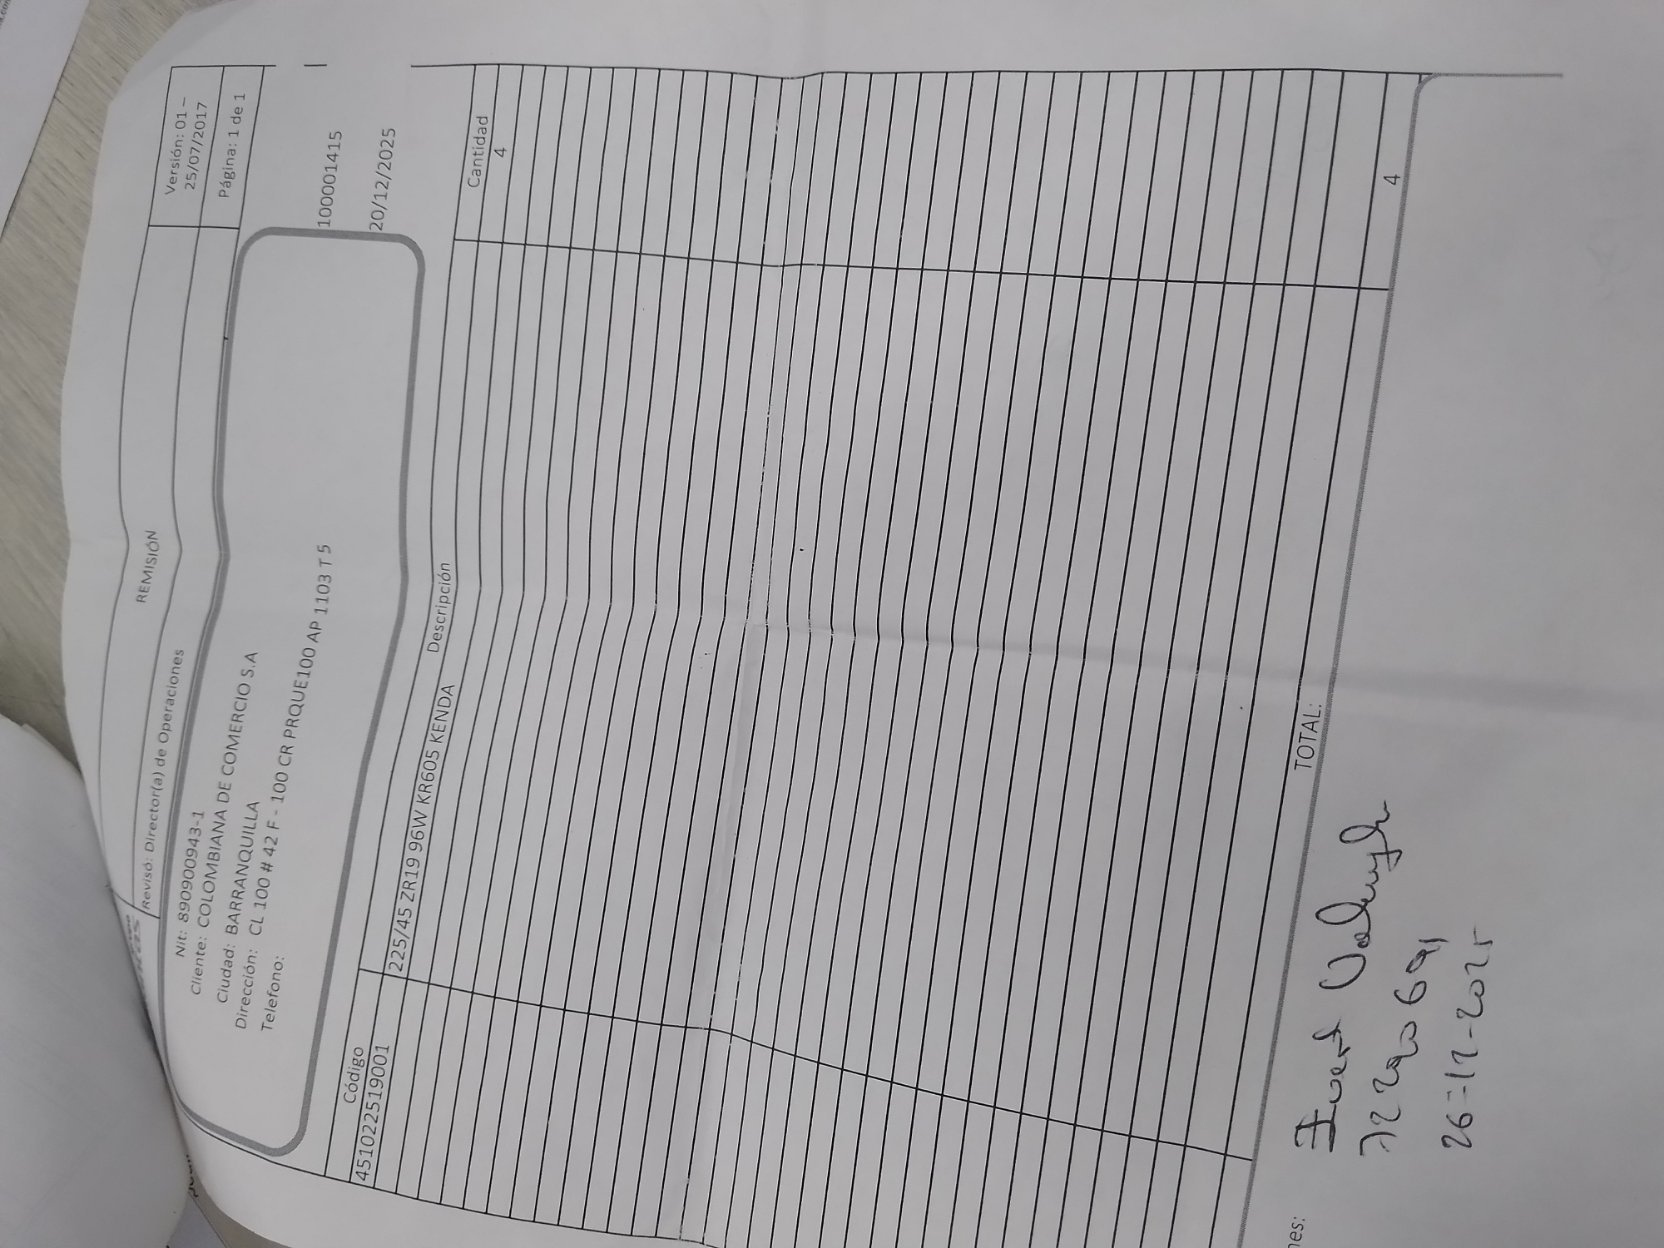 REMISIÓN
Versión: 01 –
25/07/2017
Revisó: Director(a) de Operaciones
Página: 1 de 1
Nit: 890900943-1
Cliente: COLOMBIANA DE COMERCIO S.A
Ciudad: BARRANQUILLA
Dirección: CL 100 # 42 F - 100 CR PRQUE100 AP 1103 T 5
Telefono:
100001415
20/12/2025
Código Descripción Cantidad
4510222519001 225/45 ZR19 96W KR605 KENDA 4
TOTAL: 4
nes:
72290691
26-12-2025